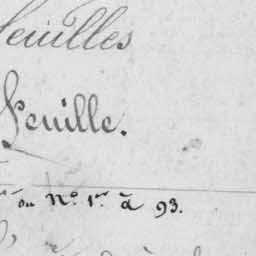 feuilles
feuille.
ou Nº. 1er. à 93.